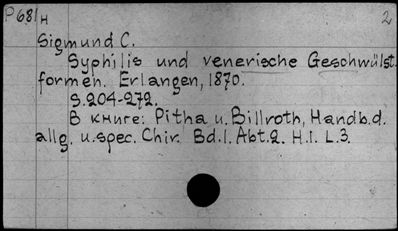 P681н 2
Sigmund C.
Syphilis und venerische Geschwülst.
formen. Erlangen, 1870.
S.204-272.
В книге: Pitha u. Billroth, Handb. d.
allg. u. spec. Chir. Bd.1. Abt.2. H.1. L.3.